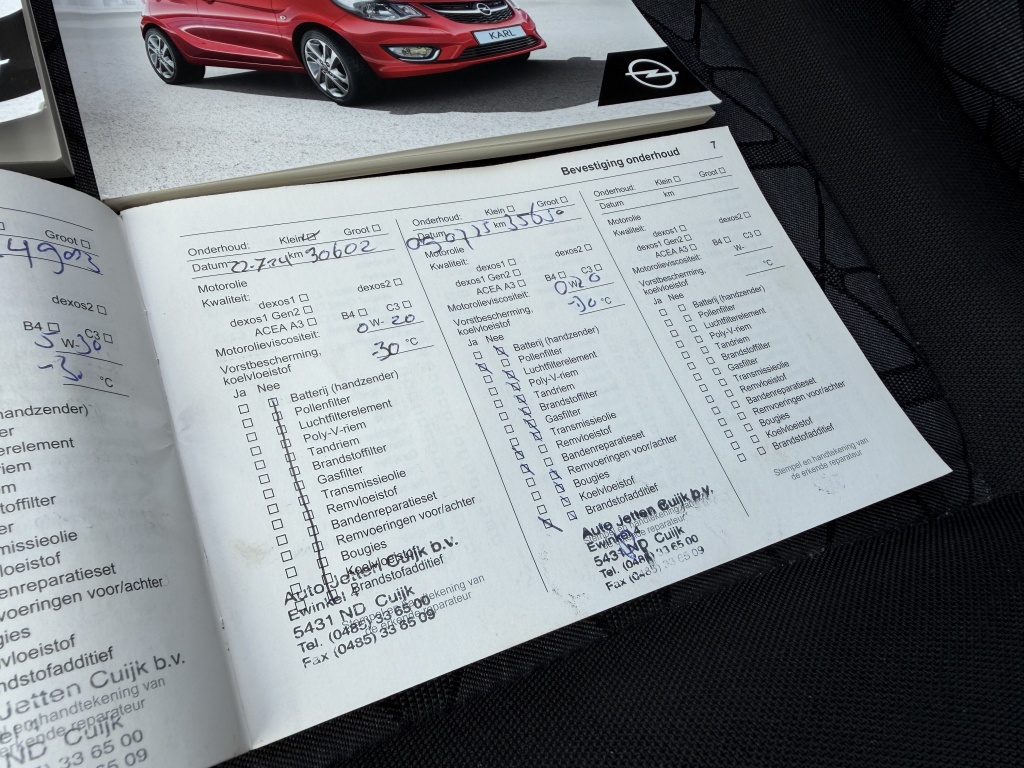 KARL
Bevestiging onderhoud 7
Groot
dexos2
B4 C3
5 W-30
°C
handzender)
erelement
riem
toffilter
missieolie
enreparatieset
voeringen voor/achter
gies
lvloeistof
ndstofadditief
Jetten Cuijk b.v.
ND Cuijk
33 65 00
65 09
Onderhoud: Klein Groot
Datum 22-7-24 km 30602
Motorolie
Kwaliteit: dexos1 dexos2
dexos1 Gen2
ACEA A3 B4 C3
Motorolieviscositeit: 0 W- 20
Vorstbescherming,
koelvloeistof -30 °C
Ja Nee
Batterij (handzender)
Pollenfilter
Luchtfilterelement
Poly-V-riem
Tandriem
Brandstoffilter
Gasfilter
Transmissieolie
Remvloeistof
Bandenreparatieset
Remvoeringen voor/achter
Bougies
Koelvloeistof
Brandstofadditief
Auto Jetten Cuijk b.v.
Ewinkel 4
5431 ND Cuijk
Tel. (0485) 33 65 00
Fax (0485) 33 65 09
Onderhoud: Klein Groot
Datum km 35650
Motorolie
Kwaliteit: dexos1
dexos1 Gen2
ACEA A3 B4 C3
Motorolieviscositeit: 0 W 20
Vorstbescherming,
koelvloeistof -30 °C
Ja Nee
Batterij (handzender)
Pollenfilter
Luchtfilterelement
Poly-V-riem
Tandriem
Brandstoffilter
Gasfilter
Transmissieolie
Remvloeistof
Bandenreparatieset
Remvoeringen voor/achter
Bougies
Koelvloeistof
Brandstofadditief
Auto Jetten Cuijk b.v.
Ewinkel
5431 ND Cuijk
Tel. (0485) 33 65 00
Fax (0485) 33 65 09
Onderhoud: Klein Groot
Datum km
Motorolie
Kwaliteit: dexos1 dexos2
dexos1 Gen2
ACEA A3 B4 C3
Motorolieviscositeit: W-
Vorstbescherming,
koelvloeistof °C
Ja Nee
Batterij (handzender)
Pollenfilter
Luchtfilterelement
Poly-V-riem
Tandriem
Brandstoffilter
Gasfilter
Transmissieolie
Remvloeistof
Bandenreparatieset
Remvoeringen voor/achter
Bougies
Koelvloeistof
Brandstofadditief
Stempel en handtekening van
de erkende reparateur